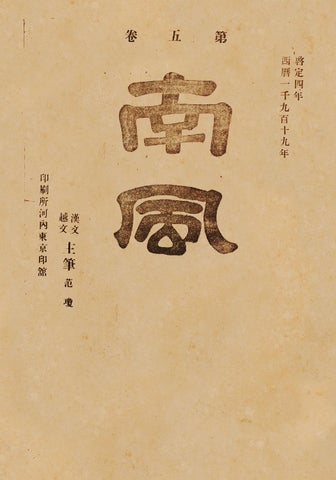 第五卷
啓定四年
西曆一千九百十九年
南風
漢文
越文
主筆 范瓊
印刷所河內東京印舘